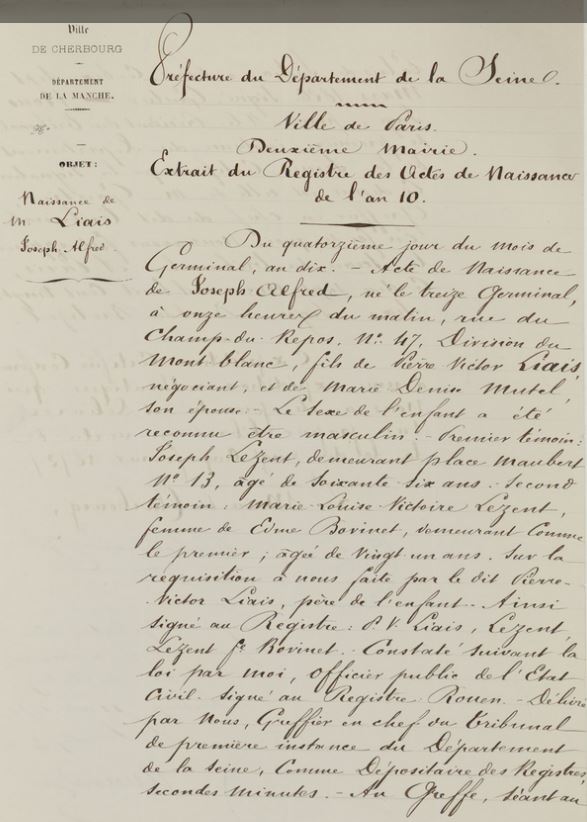 Ville
DE CHERBOURG
DÉPARTEMENT
DE LA MANCHE.
OBJET:
Naissance de
M. Liais
Joseph Alfred.
Préfecture du Département de la Seine.
Ville de Paris.
Deuxième Mairie.
Extrait du Registre des Actes de Naissance
de l'an 10.
Du quatorzième jour du mois de
Germinal, an dix. - Acte de Naissance
de Joseph Alfred, né le treize Germinal,
à onze heures du matin, rue du
Champ-du-Repos, N° 47, Division du
Mont blanc, fils de Pierre Victor Liais,
négociant, et de Marie Denise Mutel,
son épouse. - Le sexe de l'enfant a été
reconnu être masculin. - Premier témoin:
Joseph Lezent, demeurant place Maubert
N° 13, âgé de soixante six ans. Second
témoin: Marie Louise Victoire Lezent,
femme de Edme Bovinet, demeurant comme
le premier; âgée de vingt un ans. Sur la
réquisition à nous faite par le dit Pierre-
Victor Liais, père de l'enfant. - Ainsi
signé au Registre: P. V. Liais, Lezent,
Lezent fe Bovinet. - Constaté suivant la
loi par moi, officier public de l'Etat
Civil. Signé au Registre Rouen. - Délivré
par Nous, Greffier en chef du Tribunal
de première instance du Département
de la Seine, Comme Dépositaire des Registres,
secondes minutes. - Au Greffe, séant au